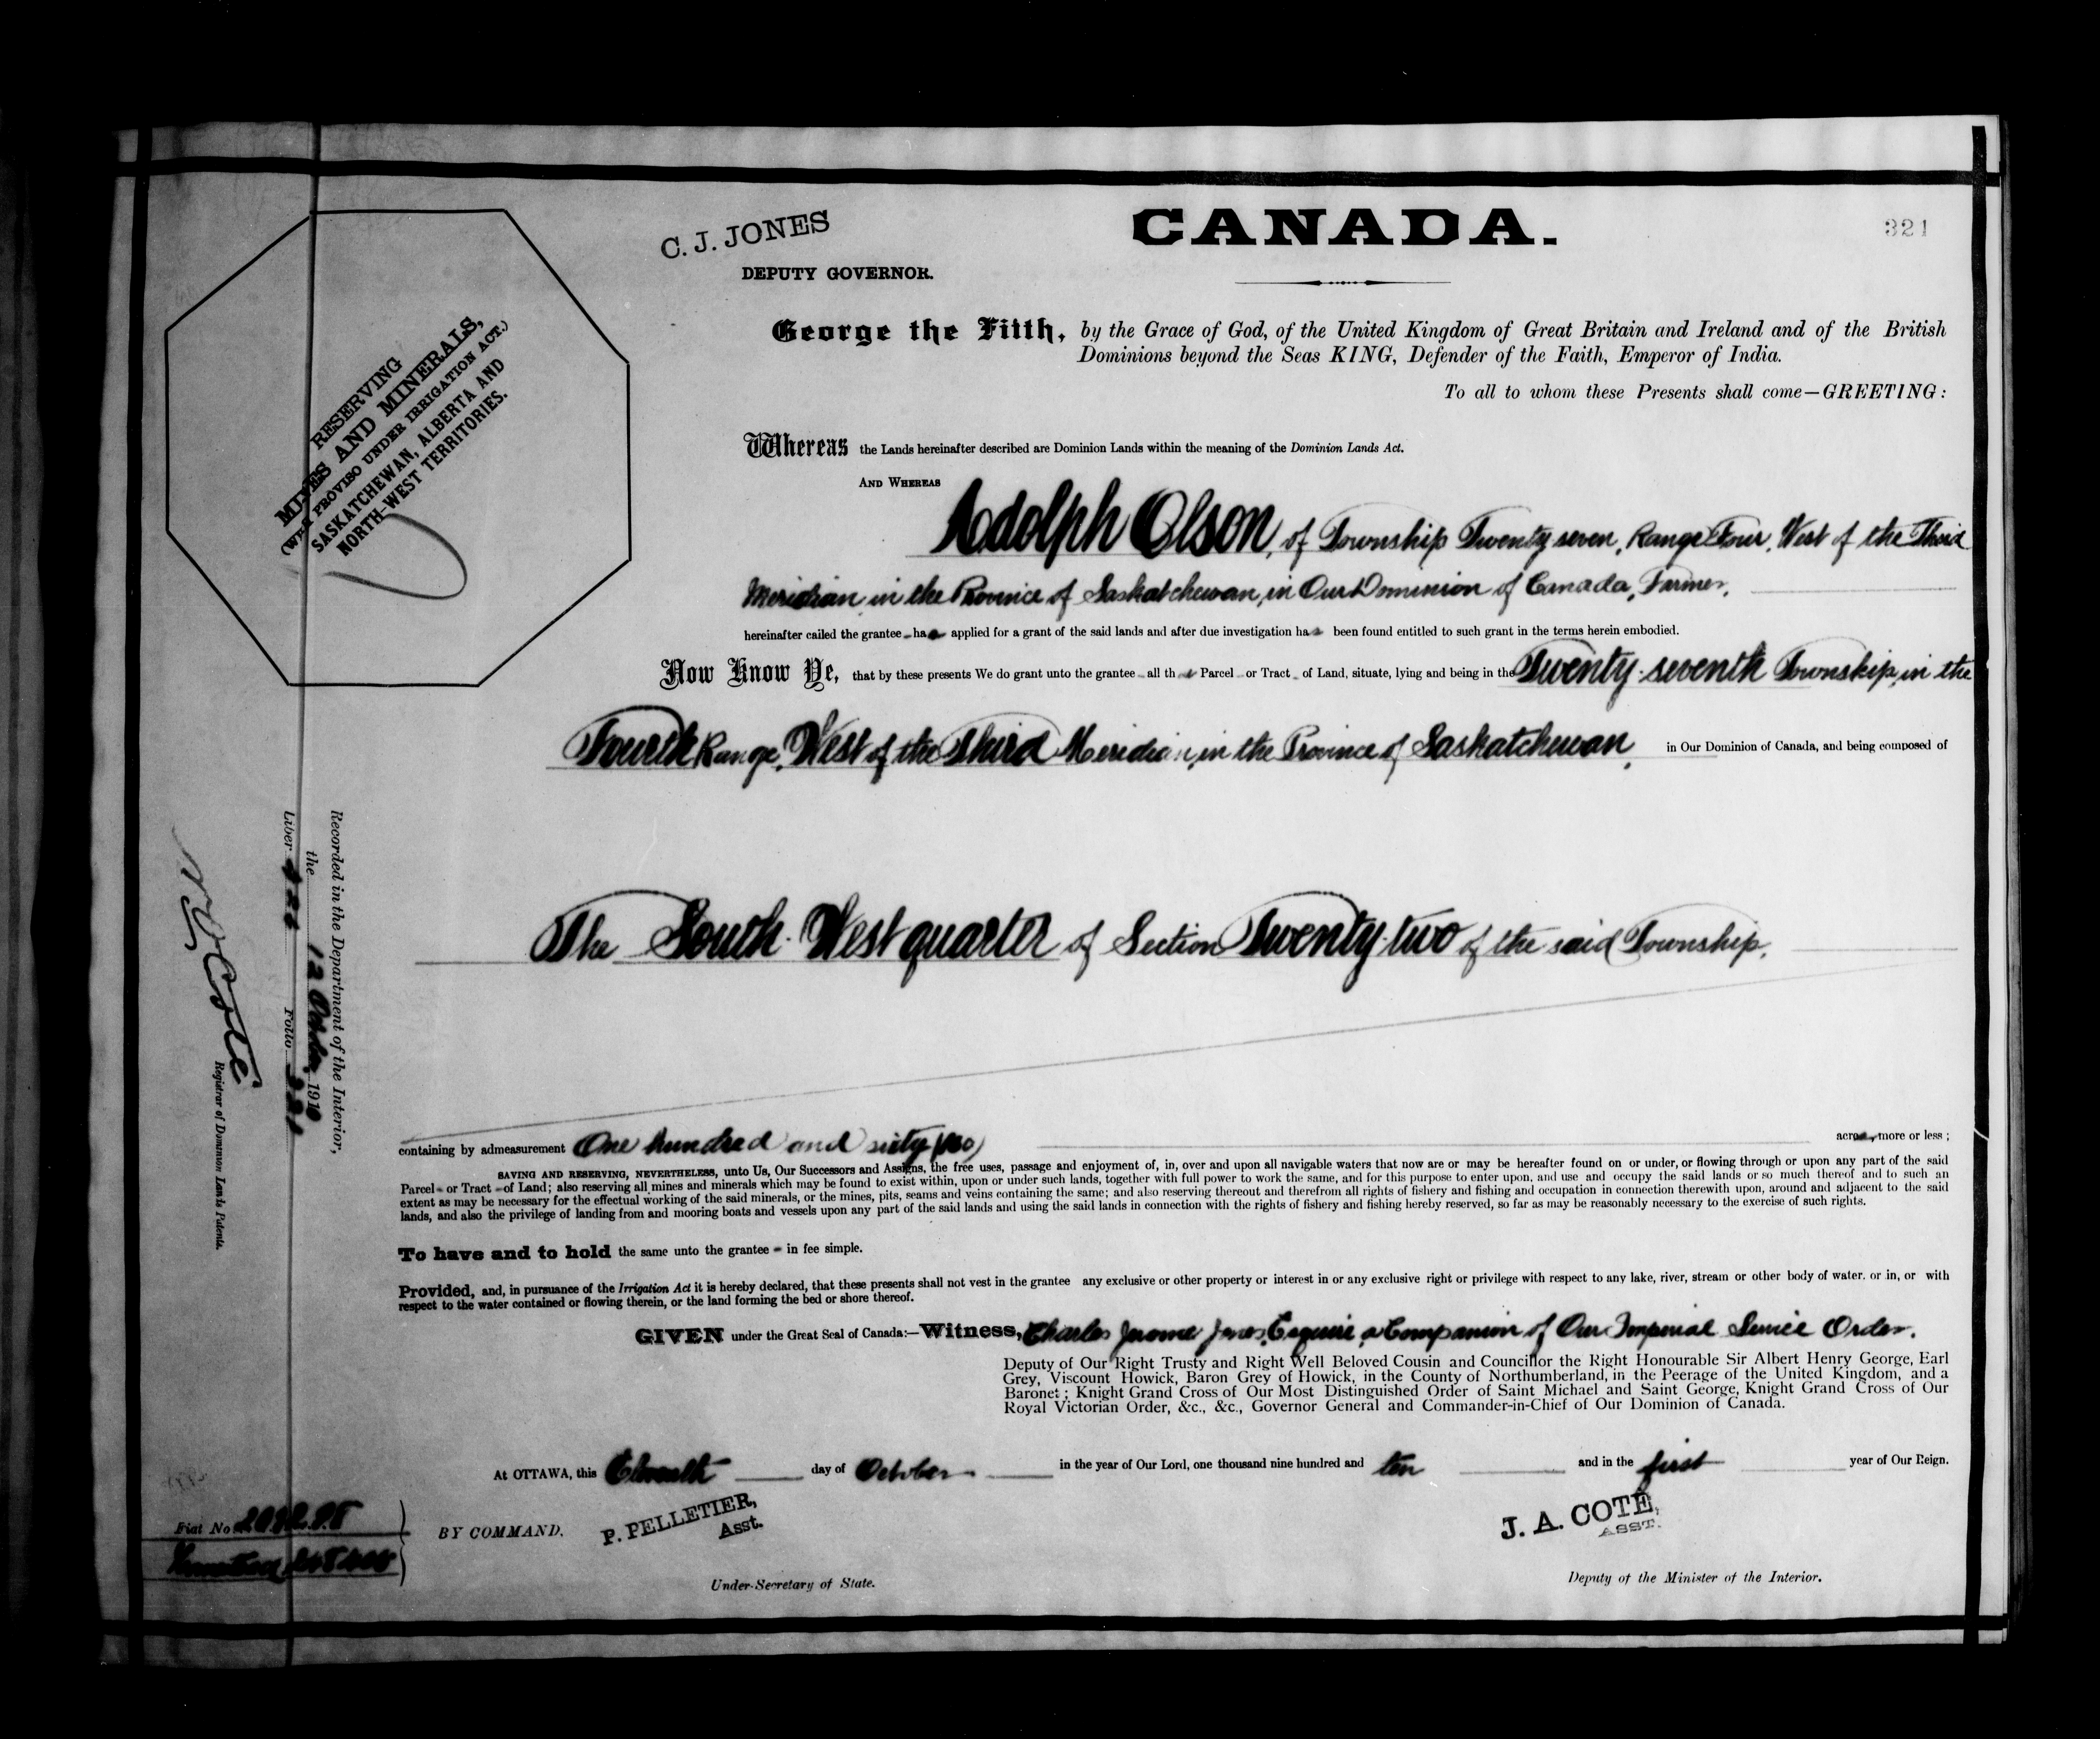 C. J. JONES
DEPUTY GOVERNOR.
CANADA.
321
RESERVING
MINES AND MINERALS,
(WITH PROVISO UNDER IRRIGATION ACT.)
SASKATCHEWAN, ALBERTA AND
NORTH-WEST TERRITORIES.
George the Fifth, by the Grace of God, of the United Kingdom of Great Britain and Ireland and of the British
Dominions beyond the Seas KING, Defender of the Faith, Emperor of India.
To all to whom these Presents shall come—GREETING:
Whereas the Lands hereinafter described are Dominion Lands within the meaning of the Dominion Lands Act.
AND WHEREAS
Adolph Olson, of Township Twenty seven, Range Four, West of the Third
Meridian in the Province of Saskatchewan, in Our Dominion of Canada, Farmer,
hereinafter called the grantee has applied for a grant of the said lands and after due investigation has been found entitled to such grant in the terms herein embodied.
Now Know Ye, that by these presents We do grant unto the grantee all that Parcel or Tract of Land, situate, lying and being in the Twenty-seventh Township, in the
Fourth Range, West of the Third Meridian, in the Province of Saskatchewan, in Our Dominion of Canada, and being composed of
The South-West quarter of Section Twenty-two of the said Township.
containing by admeasurement One hundred and sixty (160) acres, more or less;
SAVING AND RESERVING, NEVERTHELESS, unto Us, Our Successors and Assigns, the free uses, passage and enjoyment of, in, over and upon all navigable waters that now are or may be hereafter found on or under, or flowing through or upon any part of the said
Parcel or Tract of Land; also reserving all mines and minerals which may be found to exist within, upon or under such lands, together with full power to work the same, and for this purpose to enter upon, and use and occupy the said lands or so much thereof and to such an
extent as may be necessary for the effectual working of the said minerals, or the mines, pits, seams and veins containing the same; and also reserving thereout and therefrom all rights of fishery and fishing and occupation in connection therewith upon, around and adjacent to the said
lands, and also the privilege of landing from and mooring boats and vessels upon any part of the said lands and using the said lands in connection with the rights of fishery and fishing hereby reserved, so far as may be reasonably necessary to the exercise of such rights.
To have and to hold the same unto the grantee in fee simple.
Provided, and, in pursuance of the Irrigation Act it is hereby declared, that these presents shall not vest in the grantee any exclusive or other property or interest in or any exclusive right or privilege with respect to any lake, river, stream or other body of water, or in, or with
respect to the water contained or flowing therein, or the land forming the bed or shore thereof.
GIVEN under the Great Seal of Canada:—Witness, Charles Jerome Jones, Esquire, a Companion of Our Imperial Service Order.
Deputy of Our Right Trusty and Right Well Beloved Cousin and Councillor the Right Honourable Sir Albert Henry George, Earl
Grey, Viscount Howick, Baron Grey of Howick, in the County of Northumberland, in the Peerage of the United Kingdom, and a
Baronet; Knight Grand Cross of Our Most Distinguished Order of Saint Michael and Saint George, Knight Grand Cross of Our
Royal Victorian Order, &c., &c., Governor General and Commander-in-Chief of Our Dominion of Canada.
At OTTAWA, this Eleventh day of October in the year of Our Lord, one thousand nine hundred and ten and in the first year of Our Reign.
BY COMMAND.
P. PELLETIER,
Asst.
Under-Secretary of State.
J. A. COTE,
ASST.
Deputy of the Minister of the Interior.
Recorded in the Department of the Interior,
the 12 October 1910
Liber Folio 321
N. O. Coté
Registrar of Dominion Lands Patents.
Fiat No